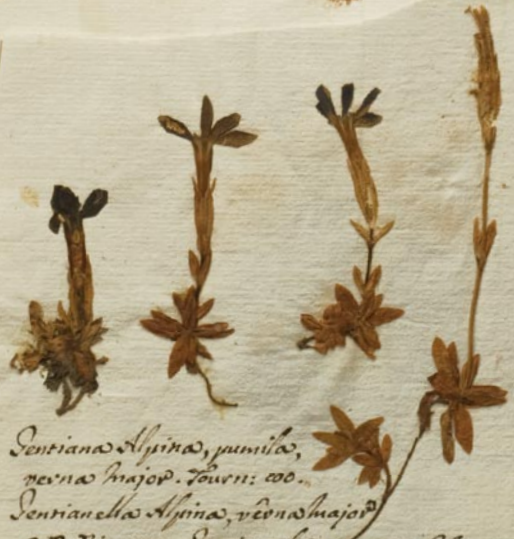 Gentiana Alpina, pumila,
verna major. Tourn:
Gentianella Alpina, verna major